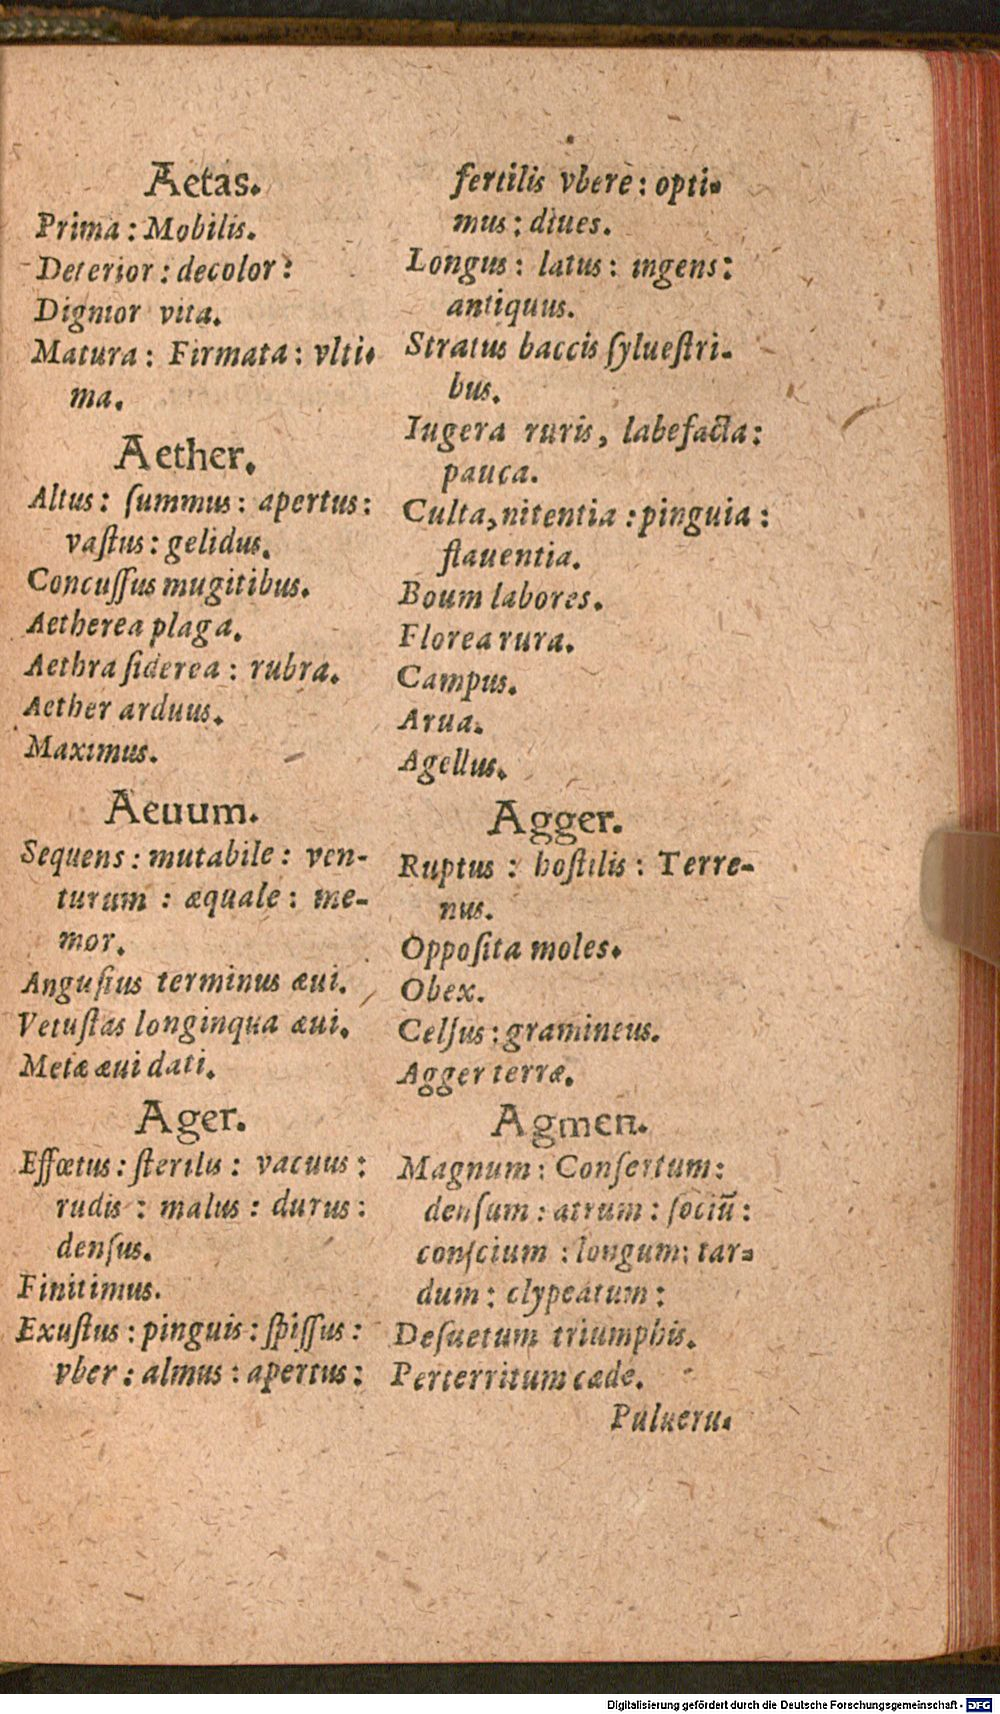 Aetas.
Prima : Mobilis.
Deterior : decolor :
Dignior vita.
Matura : Firmata : vlti-
ma.
Aether.
Altus : ſummus : apertus :
vaſtus : gelidus.
Concuſſus mugitibus.
Aetherea plaga.
Aethra ſiderea : rubra.
Aether arduus.
Maximus.
Aeuum.
Sequens : mutabile : ven-
turum : æquale : me-
mor.
Anguſtus terminus æui.
Vetuſtas longinqua æui.
Metæ æui dati.
Ager.
Effœtus : ſterilis : vacuus :
rudis : malus : durus :
denſus.
Finitimus.
Exuſtus : pinguis : ſpiſſus :
vber : almus : apertus :
fertilis vbere : opti-
mus : diues.
Longus : latus : ingens :
antiquus.
Stratus baccis ſylueſtri-
bus.
Iugera ruris, labefacta :
pauca.
Culta, nitentia : pinguia :
flauentia.
Boum labores.
Florea rura.
Campus.
Arua.
Agellus.
Agger.
Ruptus : hoſtilis : Terre-
nus.
Oppoſita moles.
Obex.
Celſus : gramineus.
Agger terræ.
Agmen.
Magnum : Conſertum :
denſum : atrum : ſociũ :
conſcium : longum : tar-
dum : clypeatum :
Deſuetum triumphis.
Perterritum cæde.
Pulueru-
Digitalisierung gefördert durch die Deutsche Forschungsgemeinschaft - DFG